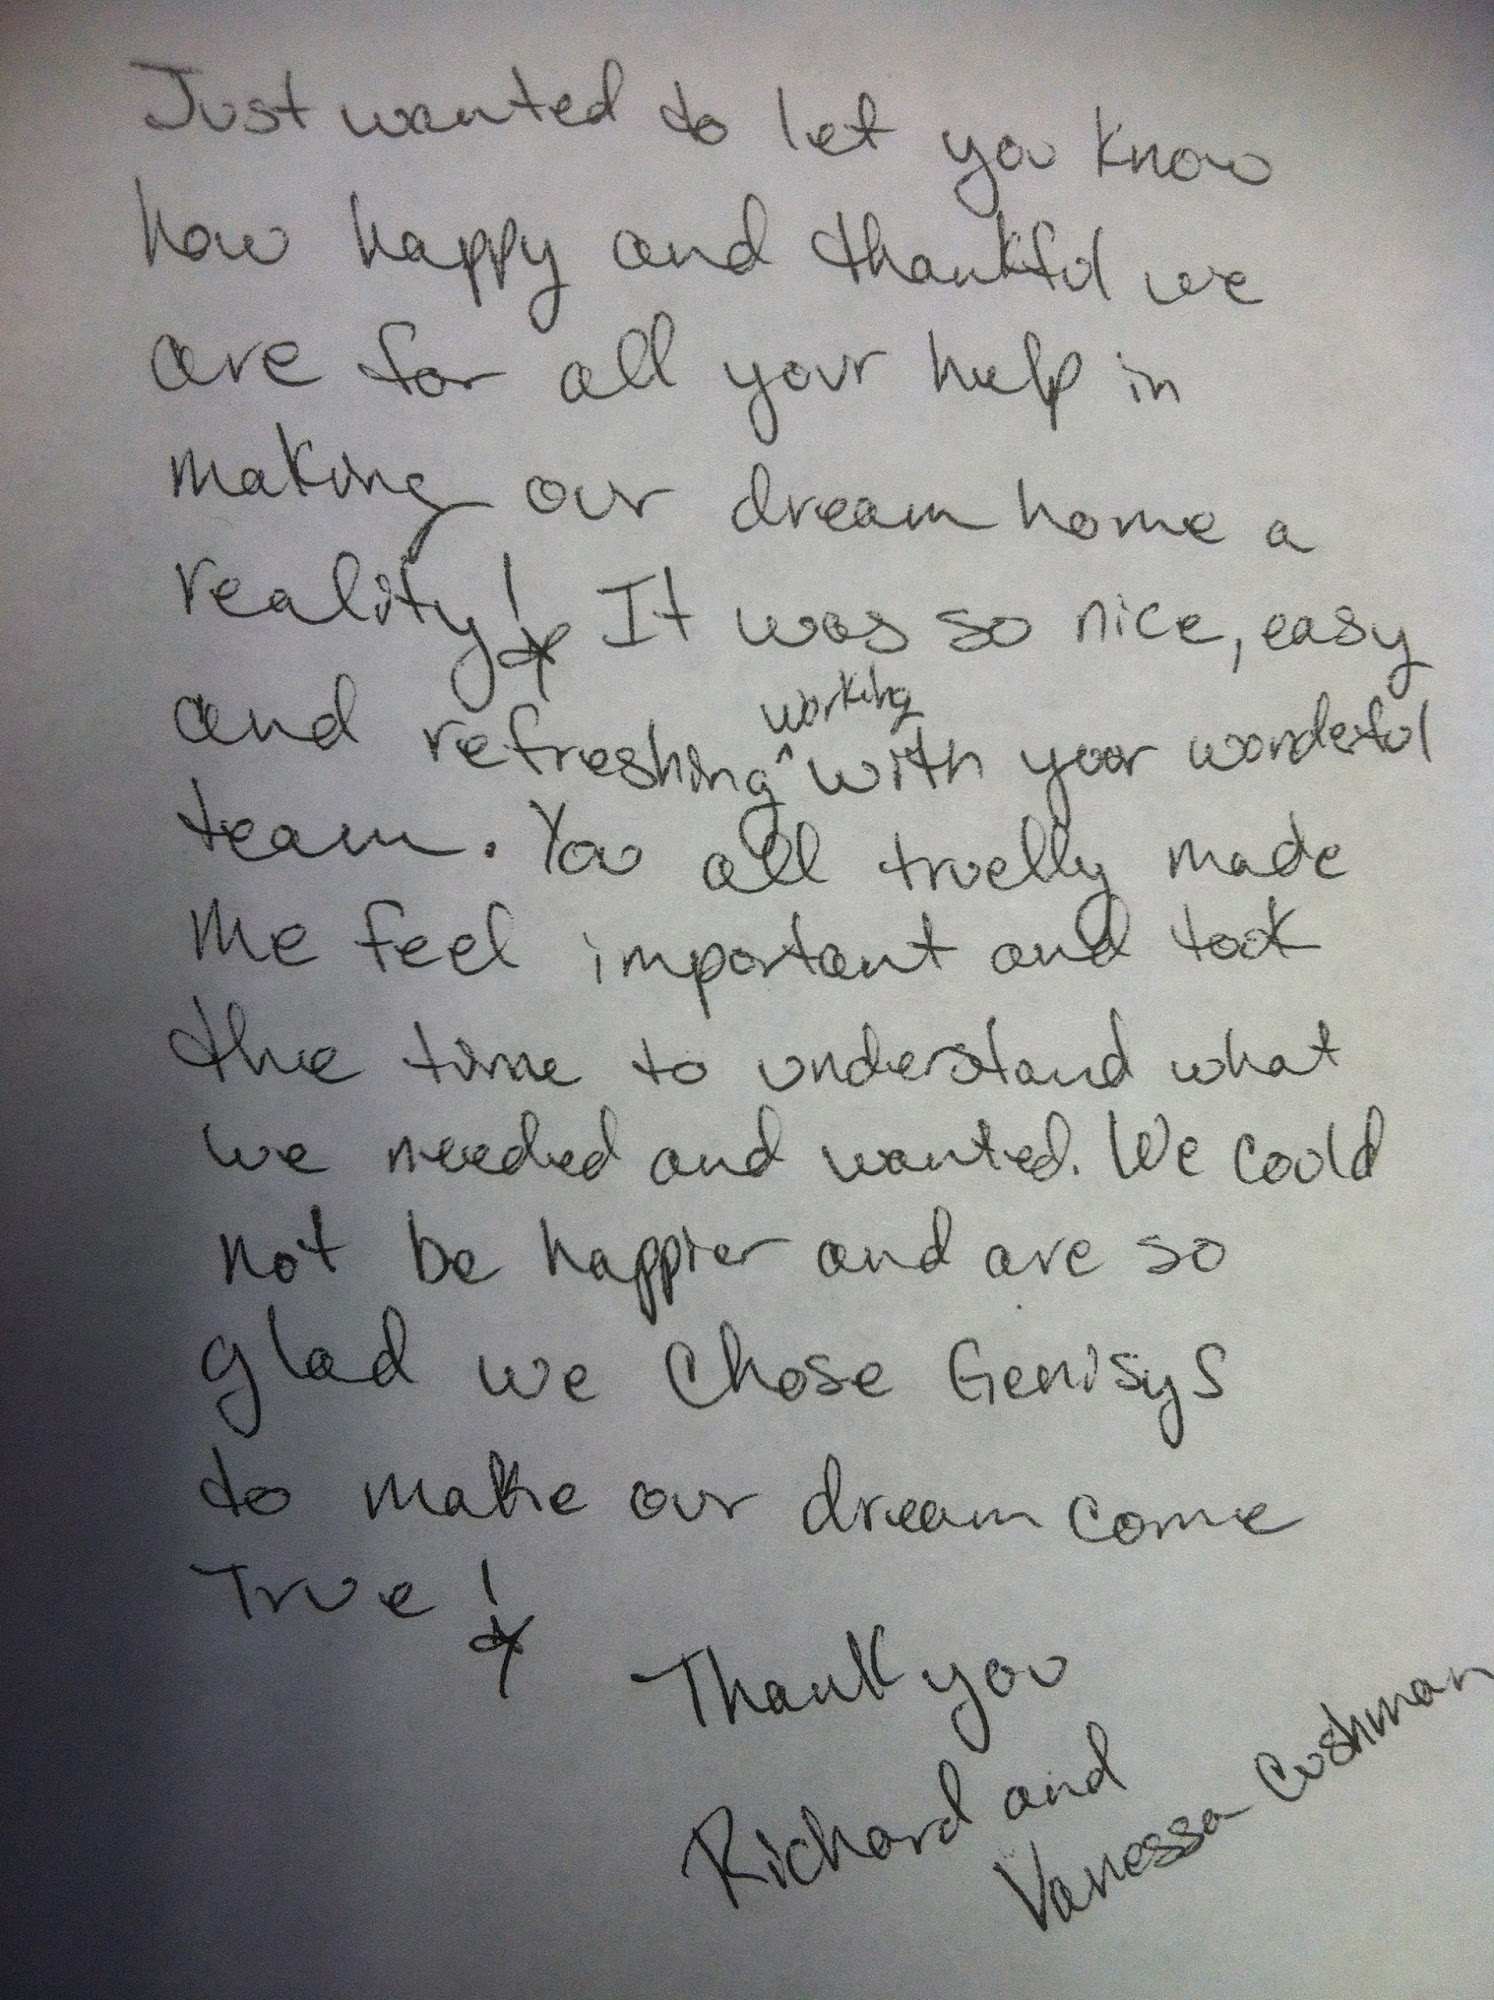 Just wanted to let you know
how happy and thankful we
are for all your help in
making our dream home a
reality! It was so nice, easy
and refreshing ^working with your wonderful
team. You all truelly made
me feel important and took
the time to understand what
we needed and wanted. We could
not be happier and are so
glad we chose Genisys
to make our dream come
True!
Thank you
Richard and
Vanessa Cushman